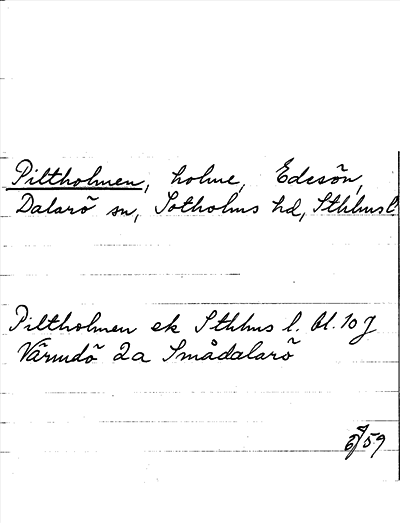 Piltholmen, holme, Edesön,
Dalarö sn, Sotholms hd, Sthlms l.
Piltholmen ek Sthlms l. bl. 10 J
Värmdö 2a Smådalarö
59